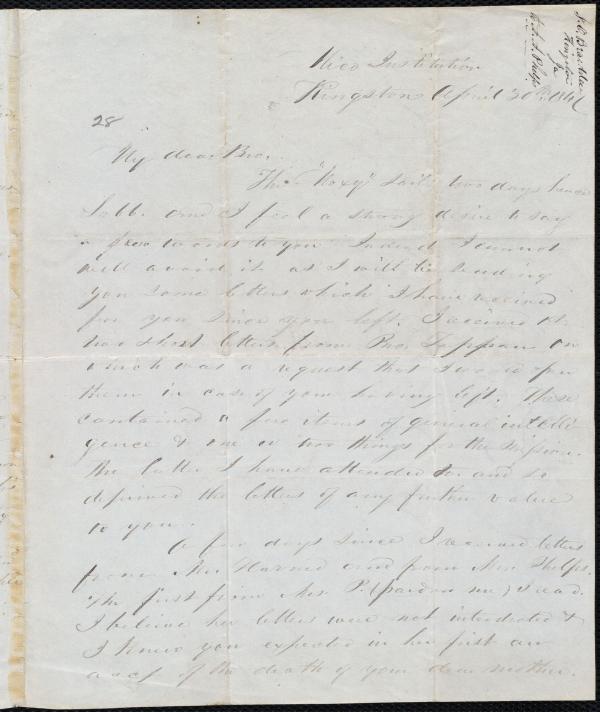 Hico Institution
Kingston April 30th
28
My dear Bro.
The "Roxy" sails two days hence
Sabb. and I feel a strong desire to say
a few words to you. Indeed I cannot
well avoid it as I will be sending
you some letters which I have received
for you since you left. I received
two short letters from Bro. Tappan on
which was a request that I would open
them in case of your having left. These
contained a few items of general intelli
gence & one or two things for the mission.
the latter I have attended to and so
deprived the letters of any further value
to you.
A few days since I received letters
from Mr. Harned and from Mrs. Phelps.
The first from Mrs. P. (pardon me) I read.
I believe her letters were not interdicted &
I knew you expected in her first an
acct of the death of your dear mother.